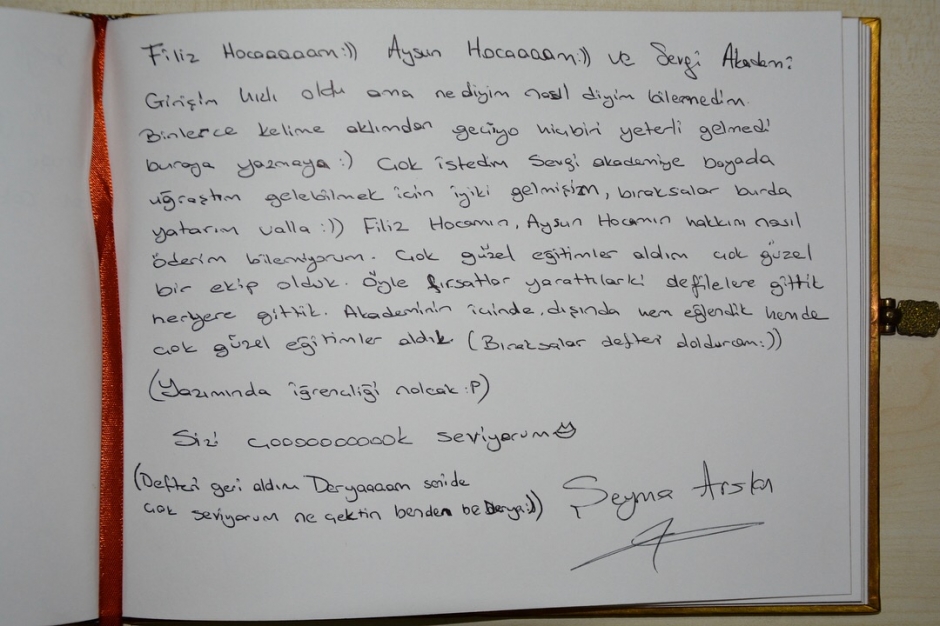 Filiz Hocaaaaam:)) Aysun Hocaaaam:)) ve Sevgi Akademi
Girişim hızlı oldu ama ne diyim nasıl diyim bilemedim.
Binlerce kelime aklımdan geçiyo hiçbiri yeterli gelmedi
buraya yazmaya :) Çok istedim Sevgi akademiye bayada
uğraştım gelebilmek için iyiki gelmişim, bıraksalar burda
yatarım valla :)) Filiz Hocamın, Aysun Hocamın hakkını nasıl
öderim bilemiyorum. Çok güzel eğitimler aldım çok güzel
bir ekip olduk. Öyle fırsatlar yarattılarki defilelere gittik
heryere gittik. Akademinin içinde, dışında hem eğlendik hemde
çok güzel eğitimler aldık. (Bıraksalar defteri doldurcam:))
(Yazımında iğrençliği nolcak :P)
Sizi çooooooooook seviyorum
(Defteri geri aldım Deryaaaam senide
çok seviyorum ne çektin benden be Derya:))
Şeyma Arslan